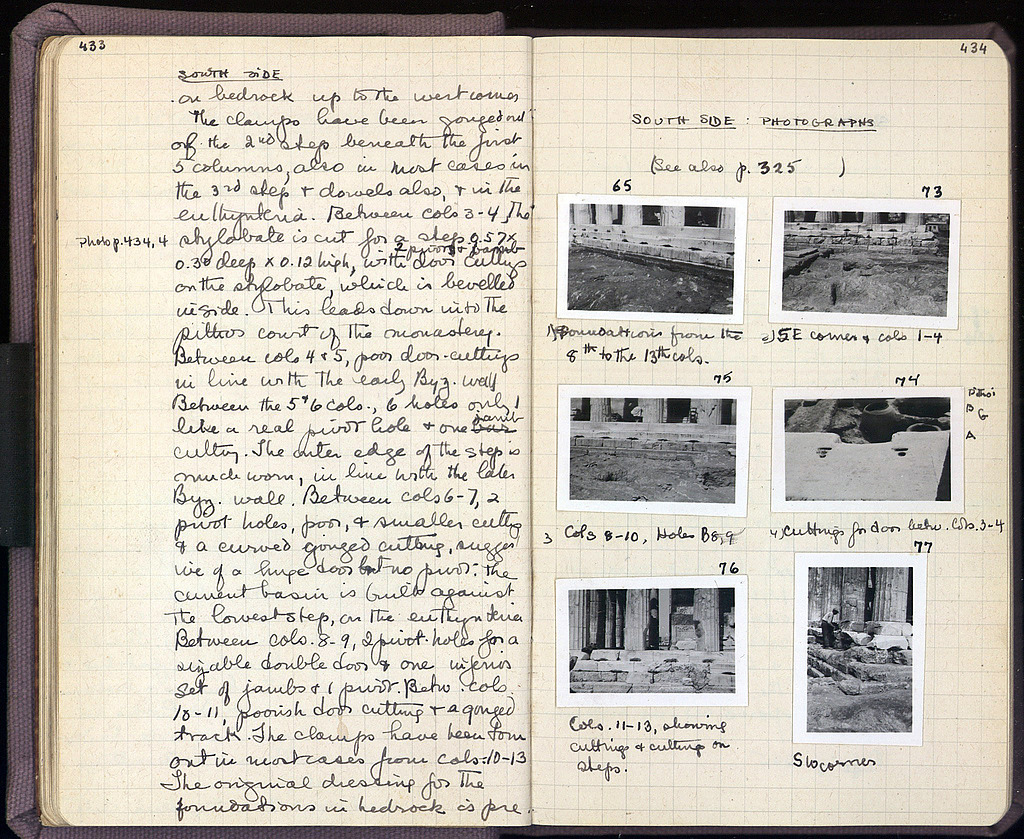 433
SOUTH SIDE
on bedrock up to the west corner
The clamps have been gouged out
of the 2nd step beneath the first
5 columns, also in most cases in
the 3rd step & dowels also, & in the
euthynteria. Between cols 3-4 the
Photo p. 434, 4
stylobate is cut for a step 0.57 x
2 pivot & jamb
0.30 deep x 0.12 high, with door cuttings
on the stylobate, which is bevelled
inside. This leads down into the
pithos court of the monastery.
Between cols 4 & 5, poor door-cuttings
in line with the early Byz. wall
Between the 5 & 6 cols., 6 holes only 1
like a real pivot hole & one jamb
cutting. The outer edge of the step is
much worn, in line with the later
Byz. wall. Between cols 6-7, 2
pivot holes, poor, & smaller cutting
& a curved gouged cutting, sugges
ive of a huge door but no pivot. The
current basin is built against
the lowest step, on the euthynteria
Between cols. 8-9, 2 pivot holes for a
sizable double door & one inferior
set of jambs & 1 pivot. Betw. cols.
10-11, poorish door cutting & a gouged
track. The clamps have been torn
out in most cases from cols. 10-13
The original dressing for the
foundations in bedrock is pre
434
SOUTH SIDE: PHOTOGRAPHS
(See also p. 325 )
65
73
1) Foundations from the
8th to the 13th cols.
2) SE corner & cols 1-4
75
74
Pithoi
B G
A
3 Cols 8-10, Holes B8, 9
4, Cuttings for door betw. Cols. 3-4
76
77
Cols. 11-13, showing
cuttings & cutting on
steps.
SW corner